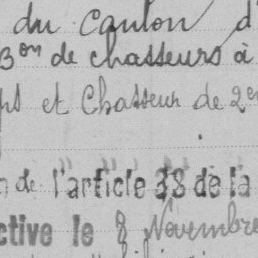 du canton d'
3on de chasseurs à
et Chasseur de 2e
de l'article 38 de la
ctive le 8 Novembre